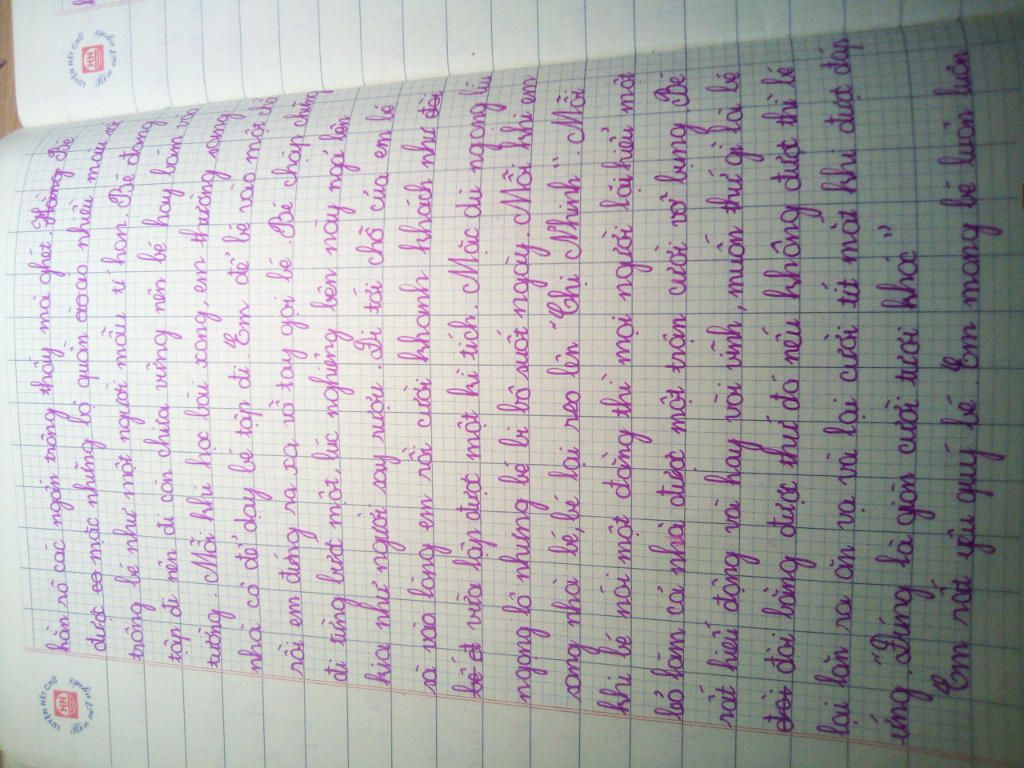 LUYỆN NÉT CHỮ
Rèn nết người
HH
LUYỆN NÉT CHỮ
Rèn nết người
HH
hằn rõ các ngấn trông thấy mà ghét. Hồng Bé
được mặc những bộ quần áo nhiều màu
trông bé như một người mẫu tí hon. Bé đang
tập đi nên đi còn chưa vững nên bé hay bám vào
tường. Mỗi khi học bài xong, em thường sang
nhà cô để dạy bé tập đi. Em để bé vào một
rồi em đứng ra xa vỗ tay gọi bé. Bé chập chững
đi từng bước một, lúc nghiêng bên này ngả bên
kia như người say rượu. Đi tới chỗ của em bé
sà vào lòng em rồi cười khanh khách như
vừa lập được một kì tích. Mặc dù ngọng líu
ngọng lô nhưng bé bi bô suốt ngày. Mỗi khi em
sang nhà bé, bé lại reo lên "Chị Nhinh". Mỗi
khi bé nói một đằng thì mọi người lại hiểu một
lẻo làm cả nhà được một trận cười vỡ bụng. Bé
rất hiếu động và hay vòi vĩnh, muốn thứ gì là bé
đòi đòi bằng được thứ đó nếu không được thì bé
lại lăn ra ăn vạ và lại cười tít mắt khi được đáp
ứng. "Đúng là giòn cười tươi khóc"
Em rất yêu quý bé. Em mong bé luôn luôn